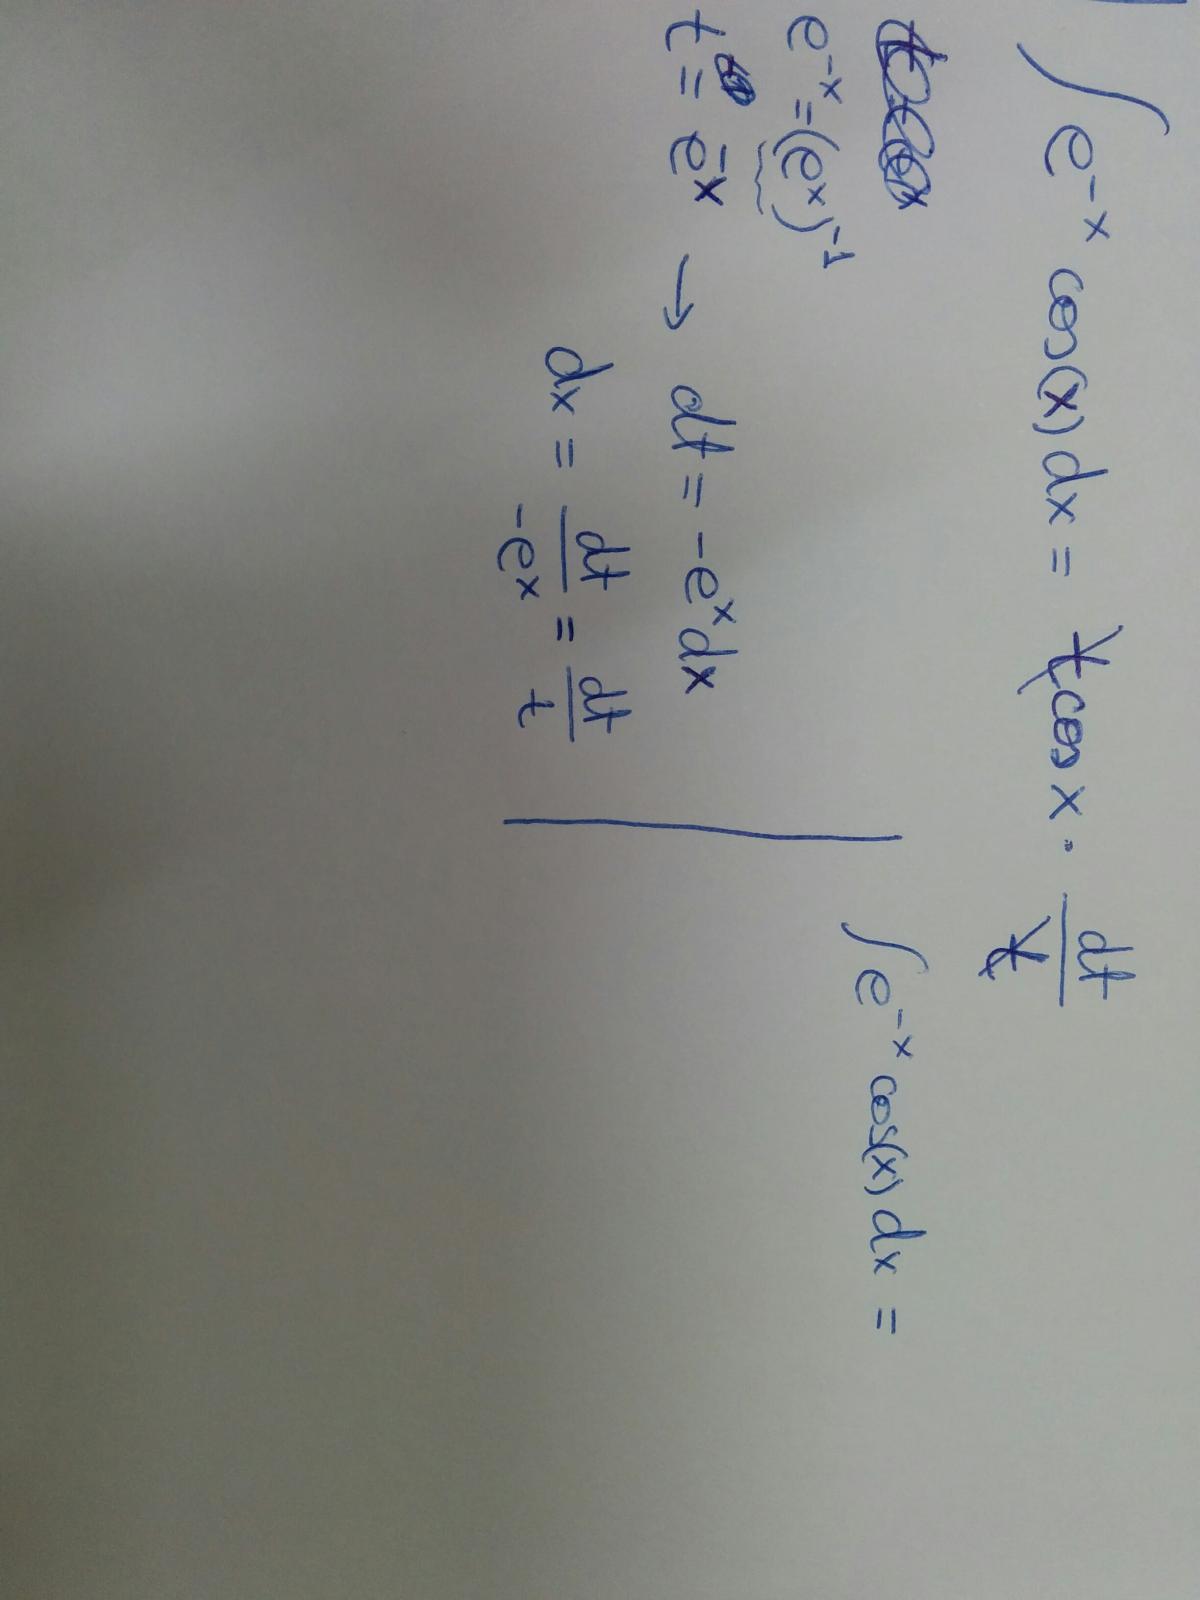 ∫ e^{-x} cos(x) dx = t cos x · dt/t
e^{-x} = (e^x)^{-1}
t = e^{-x} → dt = -e^x dx
dx = dt/-e^x = dt/t
∫ e^{-x} cos(x) dx =